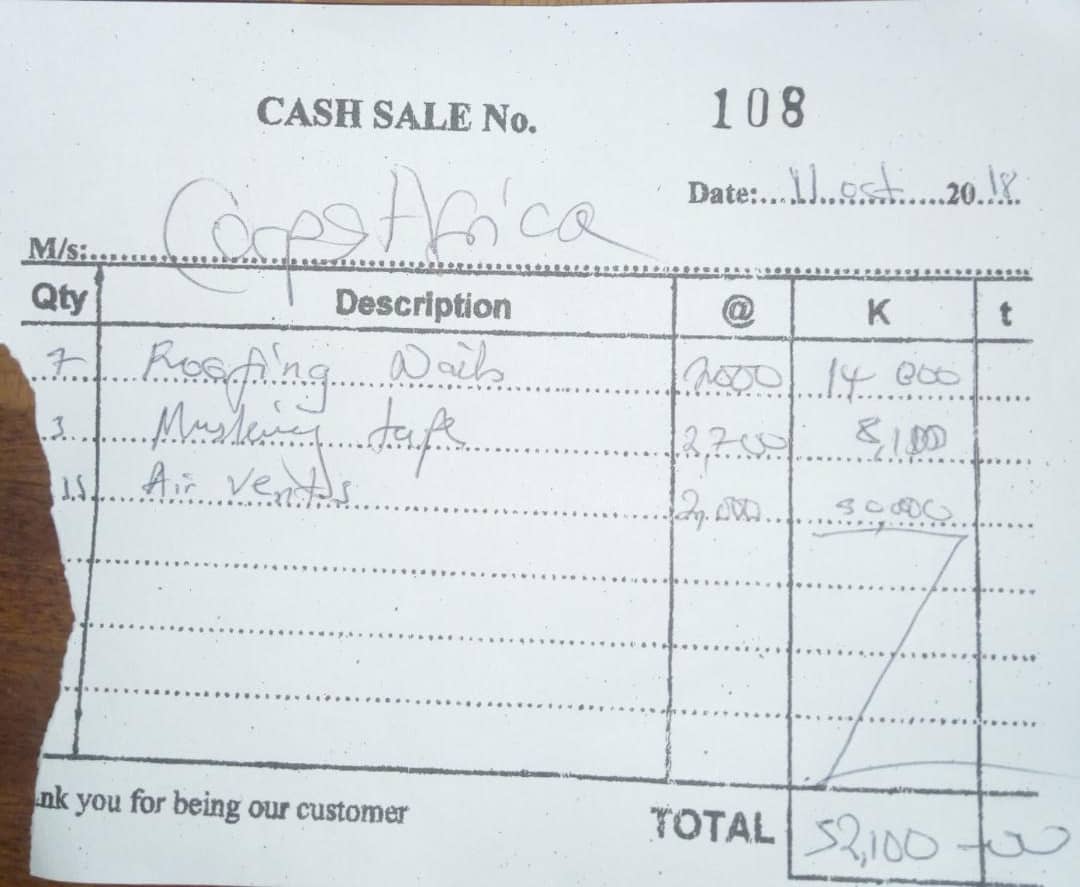 CASH SALE No. 108
Date: 11 Oct 2018
M/s: Corps Africa
Qty Description @ K t
7 Roofing Nails 2000 14 000
3 Musking tape 2,700 8,100
15 Air vents 2,000 30,000
nk you for being our customer
TOTAL 52,100 - 00